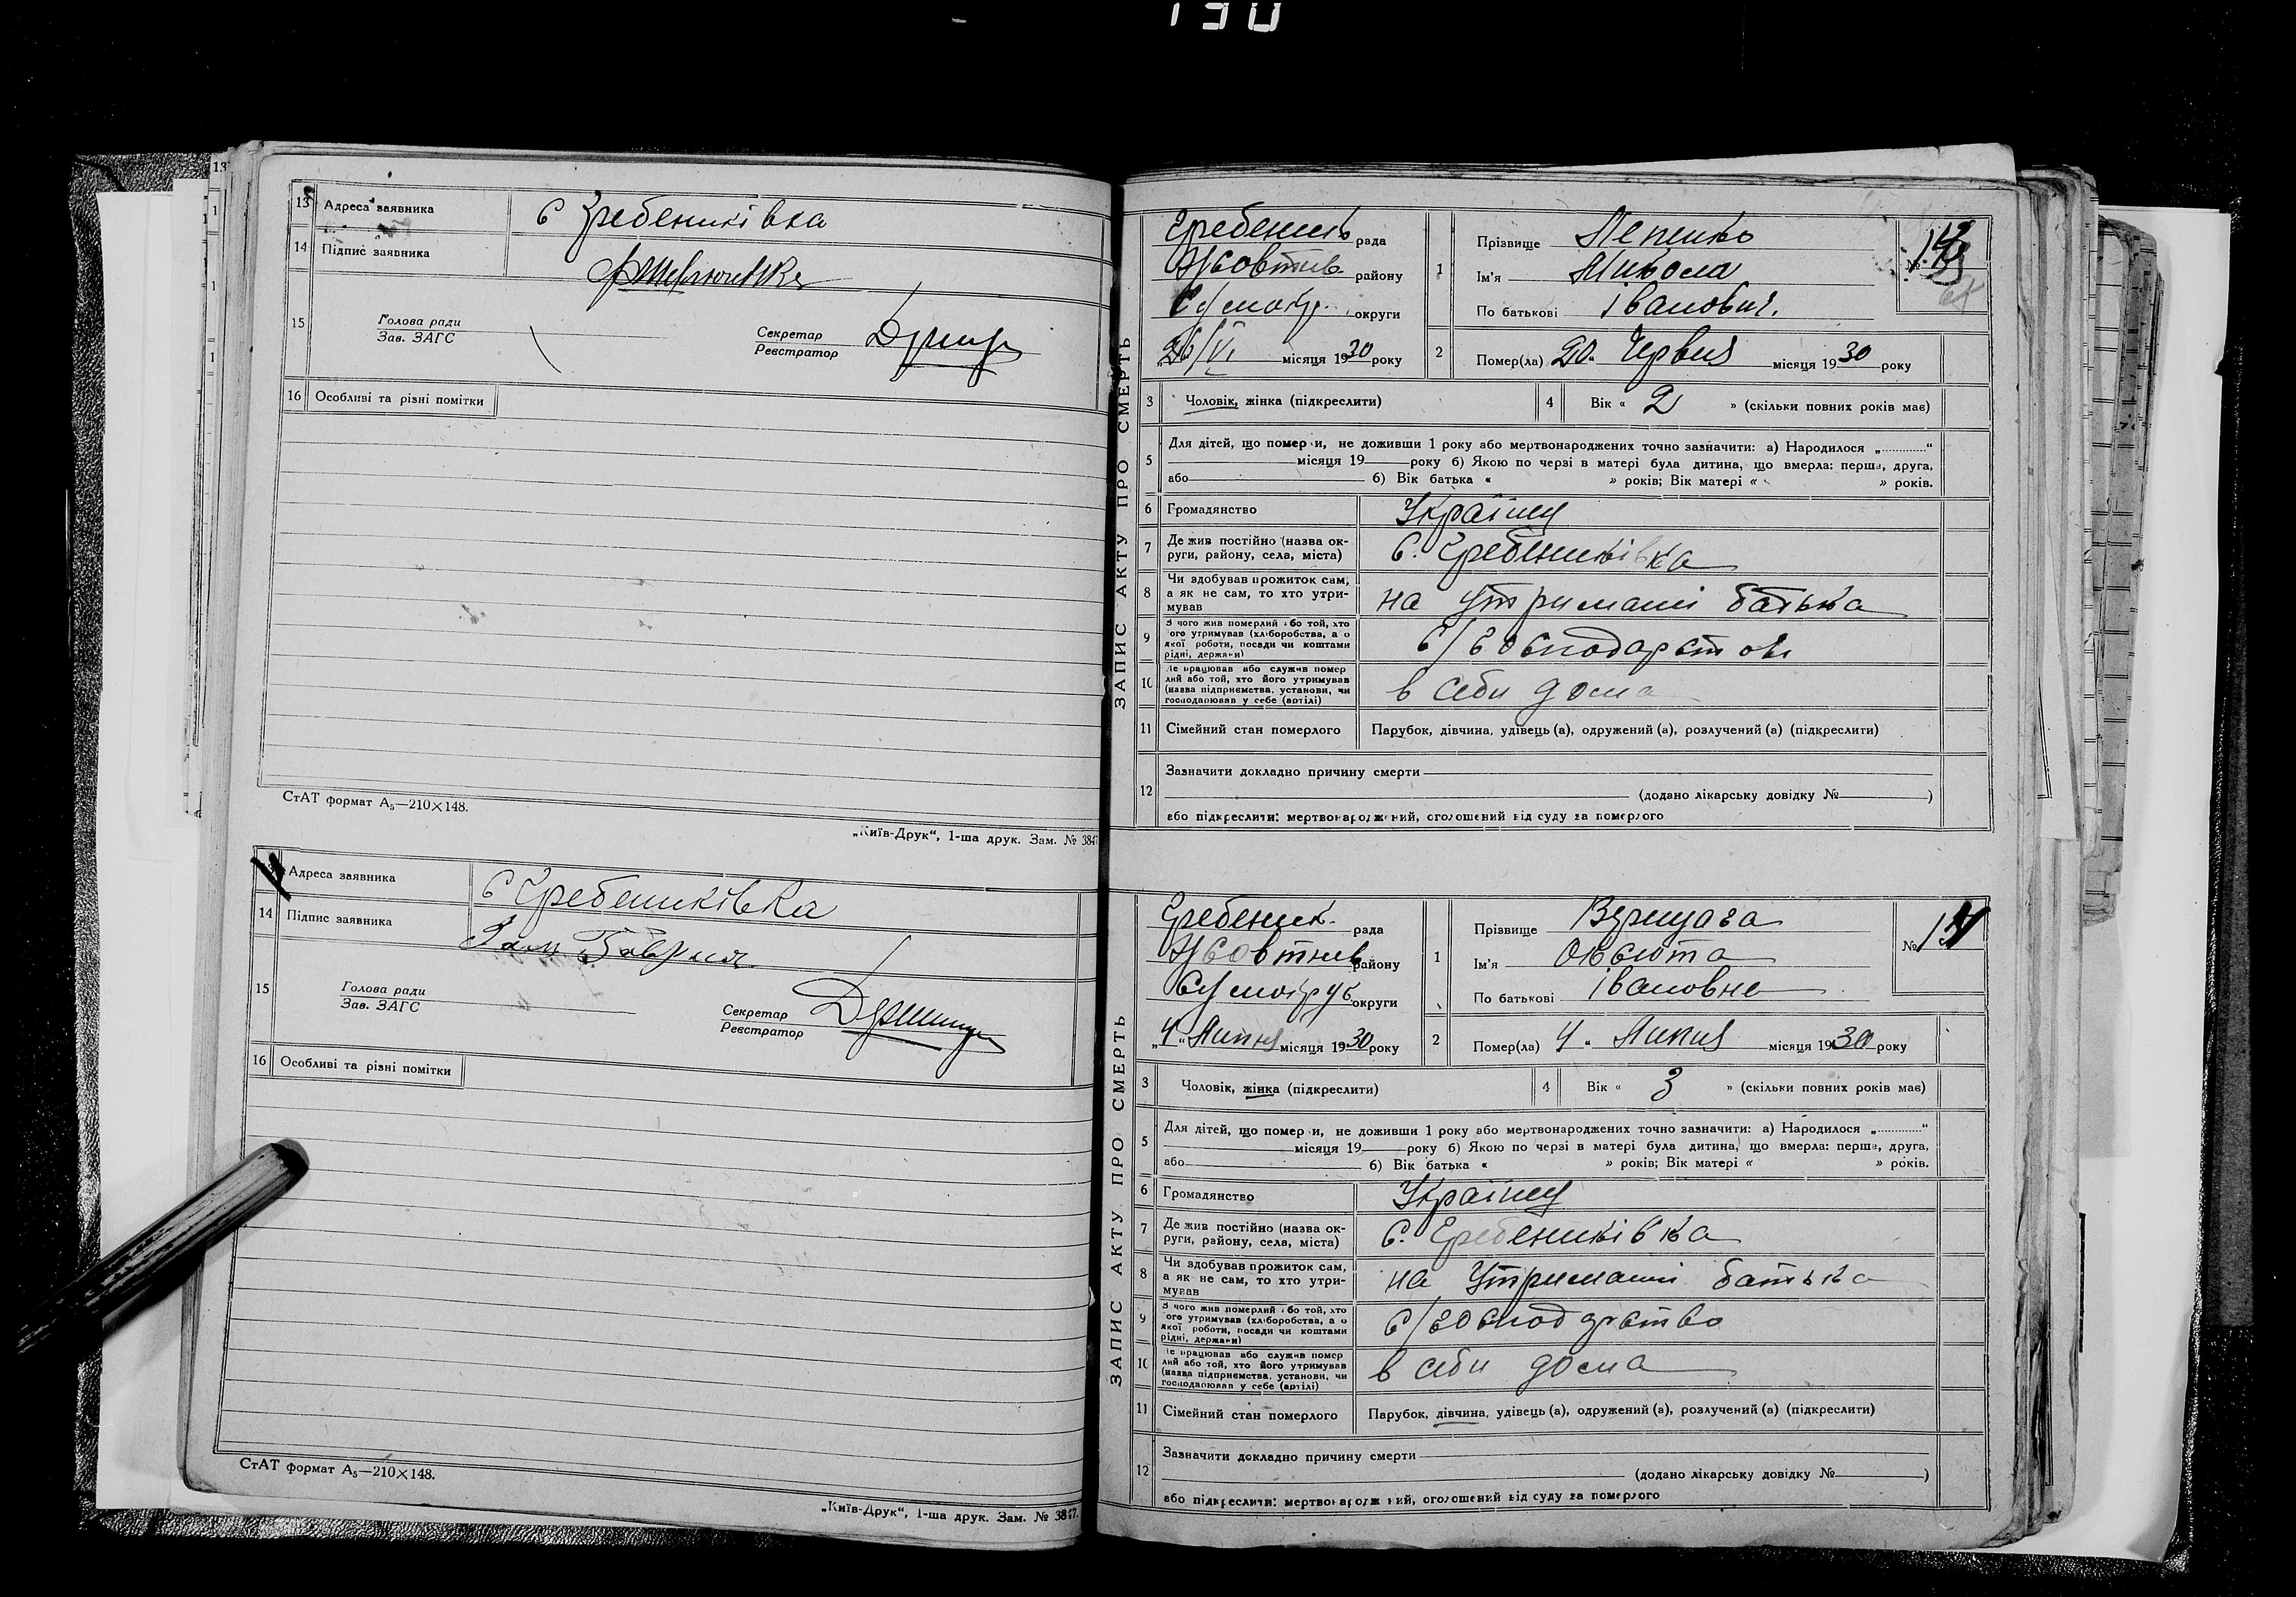 130
13 Адреса заявника с Гребениківка
14 Підпис заявника
15 Голова ради
Зав. ЗАГС
Секретар
Реєстратор
16 Особливі та різні помітки
СтАТ формат А₅—210×148.
„Київ-Друк“, 1-ша друк. Зам. № 3847
Адреса заявника с Гребениківка
14 Підпис заявника
15 Голова ради
Зав. ЗАГС
Секретар
Реєстратор
16 Особливі та різні помітки
СтАТ формат А₅—210×148.
„Київ-Друк“, 1-ша друк. Зам. № 3847.
ЗАПИС АКТУ ПРО СМЕРТЬ
рада
Жовтнів району
округи
місяця 1930 року
1 Прізвище
Ім'я Микола
По батькові Іванович.
№
2 Помер(ла) 20 „ Червня місяця 1930 року
3 Чоловік, жінка (підкреслити)
4 Вік « 2 » (скільки повних років має)
5 Для дітей, що померли, не доживши 1 року або мертвонароджених точно зазначити: а) Народилося „............“
місяця 19 року б) Якою по черзі в матері була дитина, що вмерла: перша, друга,
або б) Вік батька « » років; Вік матері « » років.
6 Громадянство
7 Де жив постійно (назва ок-
руги, району, села, міста) с. Гребениківка
8 Чи здобував прожиток сам,
а як не сам, то хто утри-
мував на утриманні батька
9 З чого жив померлий або той, хто
його утримував (хліборобства, а о
якої роботи, посади чи коштами
рідні, держави)
10 Де працював або служив помер
лий або той, хто його утримував
(назва підприємства, установи, чи
господарював у себе (артілі) в себи дома
11 Сімейний стан померлого Парубок, дівчина, удівець (а), одружений (а), розлучений (а) (підкреслити)
12 Зазначити докладно причину смерти
(додано лікарську довідку № )
або підкреслити: мертвонароджений, оголошений від суду за померлого
ЗАПИС АКТУ ПРО СМЕРТЬ
Гребеник. рада
Жовтнев району
округи
„4“ Липня місяця 1930 року
1 Прізвище
Ім'я
По батькові Івановна
№
2 Помер(ла) 4 „ Липня місяця 1930 року
3 Чоловік, жінка (підкреслити)
4 Вік « 3 » (скільки повних років має)
5 Для дітей, що померли, не доживши 1 року або мертвонароджених точно зазначити: а) Народилося „............“
місяця 19 року б) Якою по черзі в матері була дитина, що вмерла: перша, друга,
або б) Вік батька « » років; Вік матері « » років.
6 Громадянство
7 Де жив постійно (назва ок-
руги, району, села, міста) с. Гребениківка
8 Чи здобував прожиток сам,
а як не сам, то хто утри-
мував на утриманні батька
9 З чого жив померлий або той, хто
його утримував (хліборобства, а о
якої роботи, посади чи коштами
рідні, держави)
10 Де працював або служив помер
лий або той, хто його утримував
(назва підприємства, установи, чи
господарював у себе (артілі) в себи дома
11 Сімейний стан померлого Парубок, дівчина, удівець (а), одружений (а), розлучений (а) (підкреслити)
12 Зазначити докладно причину смерти
(додано лікарську довідку № )
або підкреслити: мертвонароджений, оголошений від суду за померлого